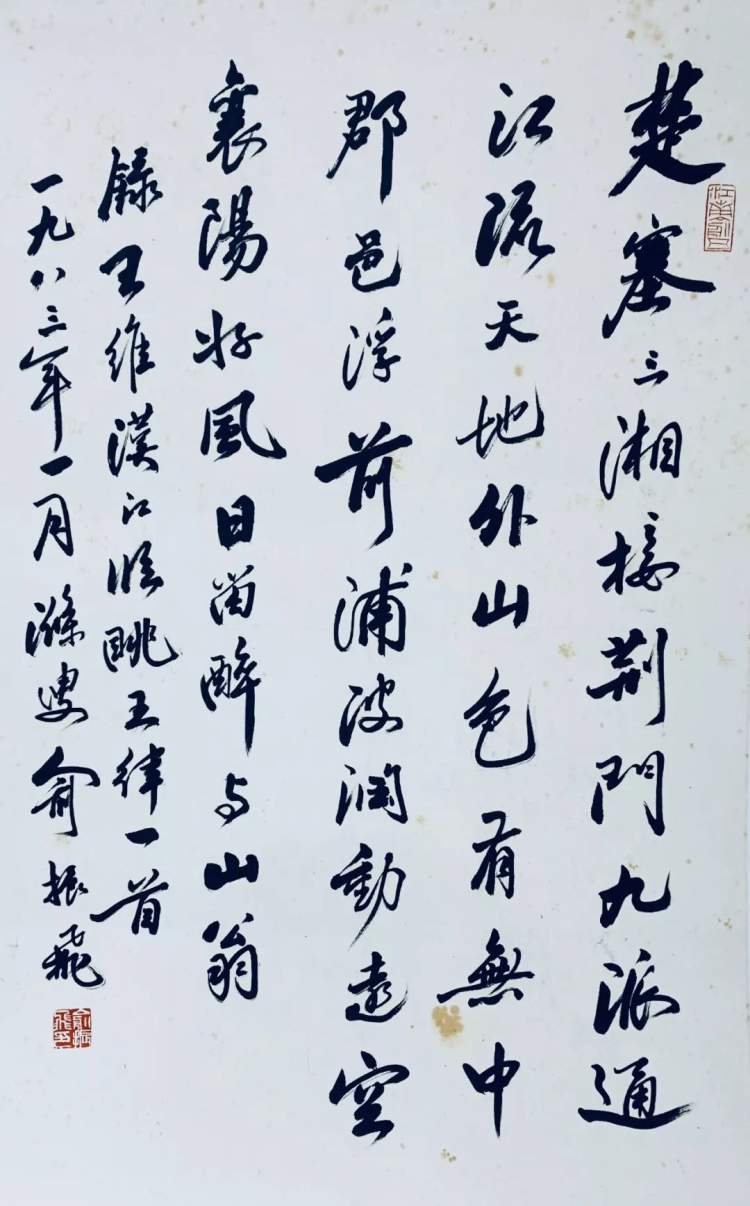 江南俞五
楚塞三湘接荆門九派通
江流天地外山色有無中
郡邑浮前浦波澜動遠空
襄陽好風日留醉与山翁
録王維漢江临眺五律一首
一九八三年一月滌叟俞振飛
俞振飛印